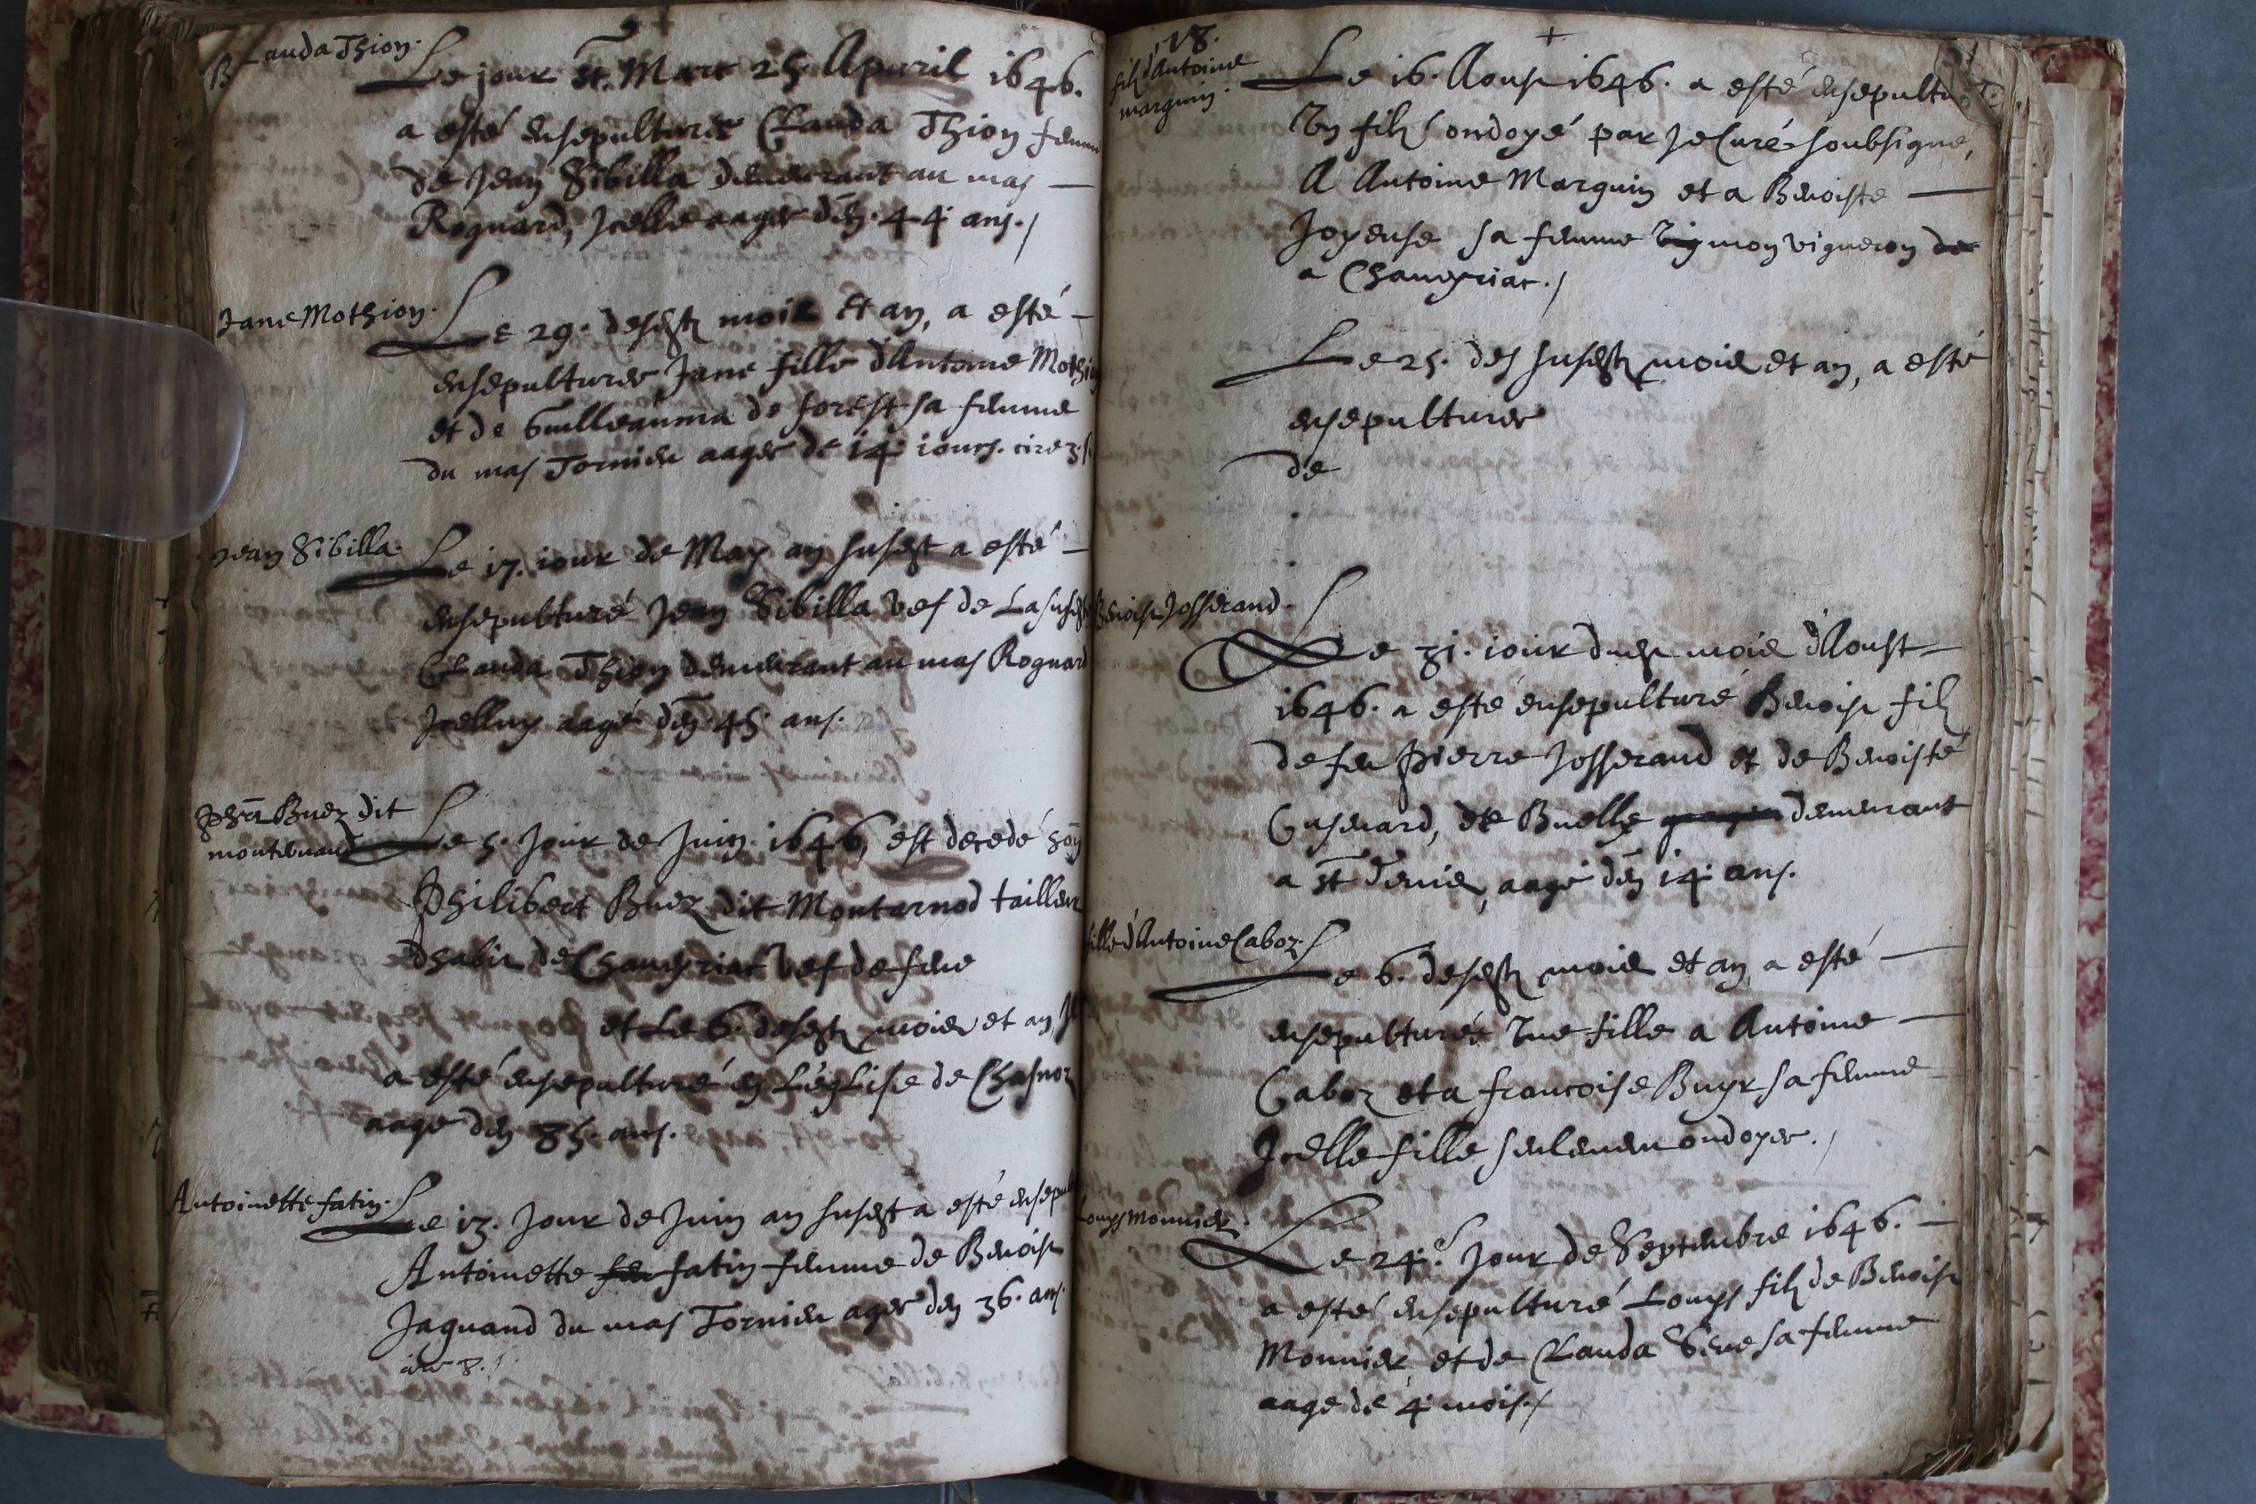 Clauda Thion.
Le jour St. Marc 25. Apvril 1646.
a esté ensepulturée Clauda Thion femme
de Jean Sibilla demeurant au mas —
Rognard, Icelle aagee den. 44 ans./
Jane Mothion.
Le 29. desdt mois et an, a esté —
ensepulturee Jane fille d'Antoine Mothion
et de Guilleauma de forest sa femme
du mas Tornier aagee de 14 iours.
Jean Sibilla.
Le 17. iour de May an susdt a esté —
ensepulturé Jean Sibilla vef de La susdt
Clauda Thion demeurant au mas Rognard
Icelluy aagé den. 45. ans.
Buez dit
Le 5. Jour de Juin. 1646, est decedé
Philibert Buez dit Montarnod tailleur
dhabit de Chaveyriat vef de feue
et Le 6. desdt mois et an
a esté ensepulturé en L'eglise de
aage den 85. ans.
Antoinette fatin.
Le 13. Jour de Juin an susdt a esté ensepul
Antoinette fatin femme de Benoist
Jaquand du mas Tornier agee den 36. ans.
18.
fils d'Antoine
marguin.
Le 16. Aoust 1646. a esté ensepulturé
Un filz ondoyé par Je Curé soubsigné,
A Antoine Marguin et a Benoiste —
Joyeuse sa femme mon vigneron de
a Chaveyriat./
Le 25. des susdt mois et an, a esté
ensepulturee
de
Benoist Josserand.
Le 31. iour dudt mois d'Aoust —
1646. a esté ensepulturé Benoist filz
de feu Pierre Josserand et de Benoiste
Cusenard, de Buelle demeurant
a St Denis, aagé den 14. ans.
fille d'Antoine Caboz.
Le 6. desdt mois et an, a esté —
ensepulturée Une fille a Antoine —
Caboz et a francoise Buyr sa femme
Icelle fille seulement ondoyee./
Louys Monnier.
Le 24.e Jour de Septembre 1646. —
a esté ensepulturé Louys filz de Benoist
Monnier, et de Clauda Seve sa femme
aage de 4 mois./